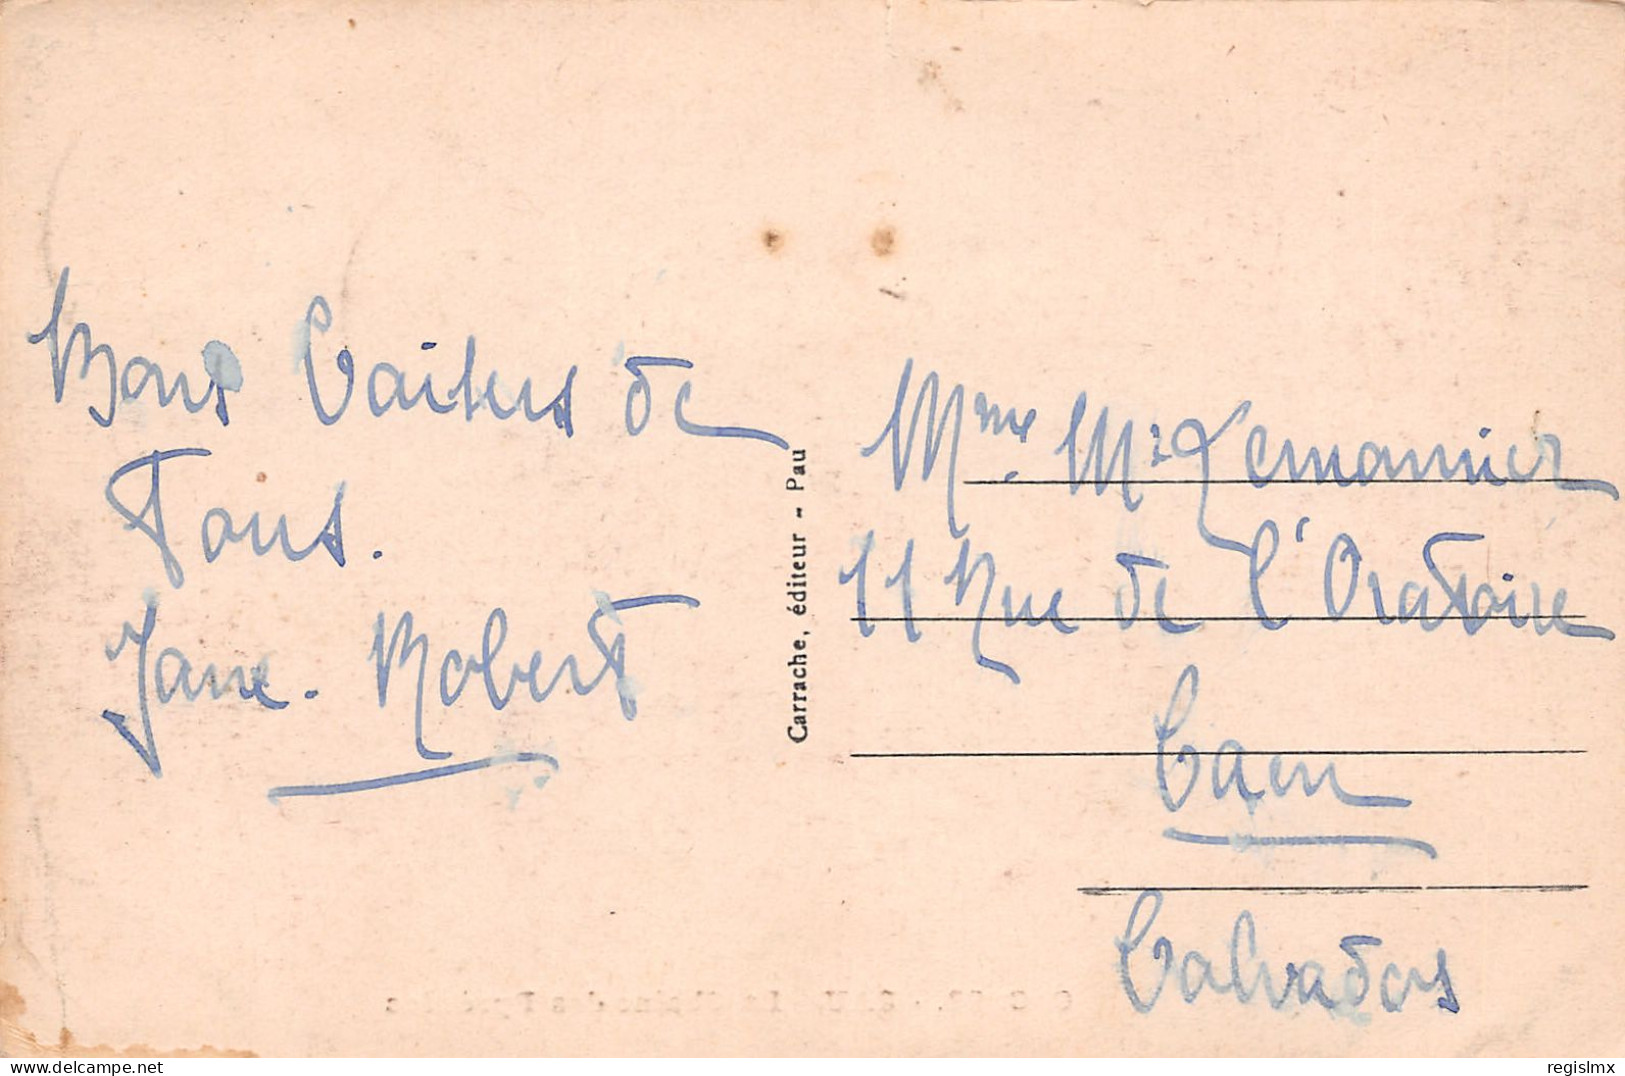 Bons Baisers de
Tous.
Jane. Robert
Carrache, éditeur - Pau
Mme Mr Lemonnier
11 Rue de l'Oratoire
Caen
Calvados
regislmx